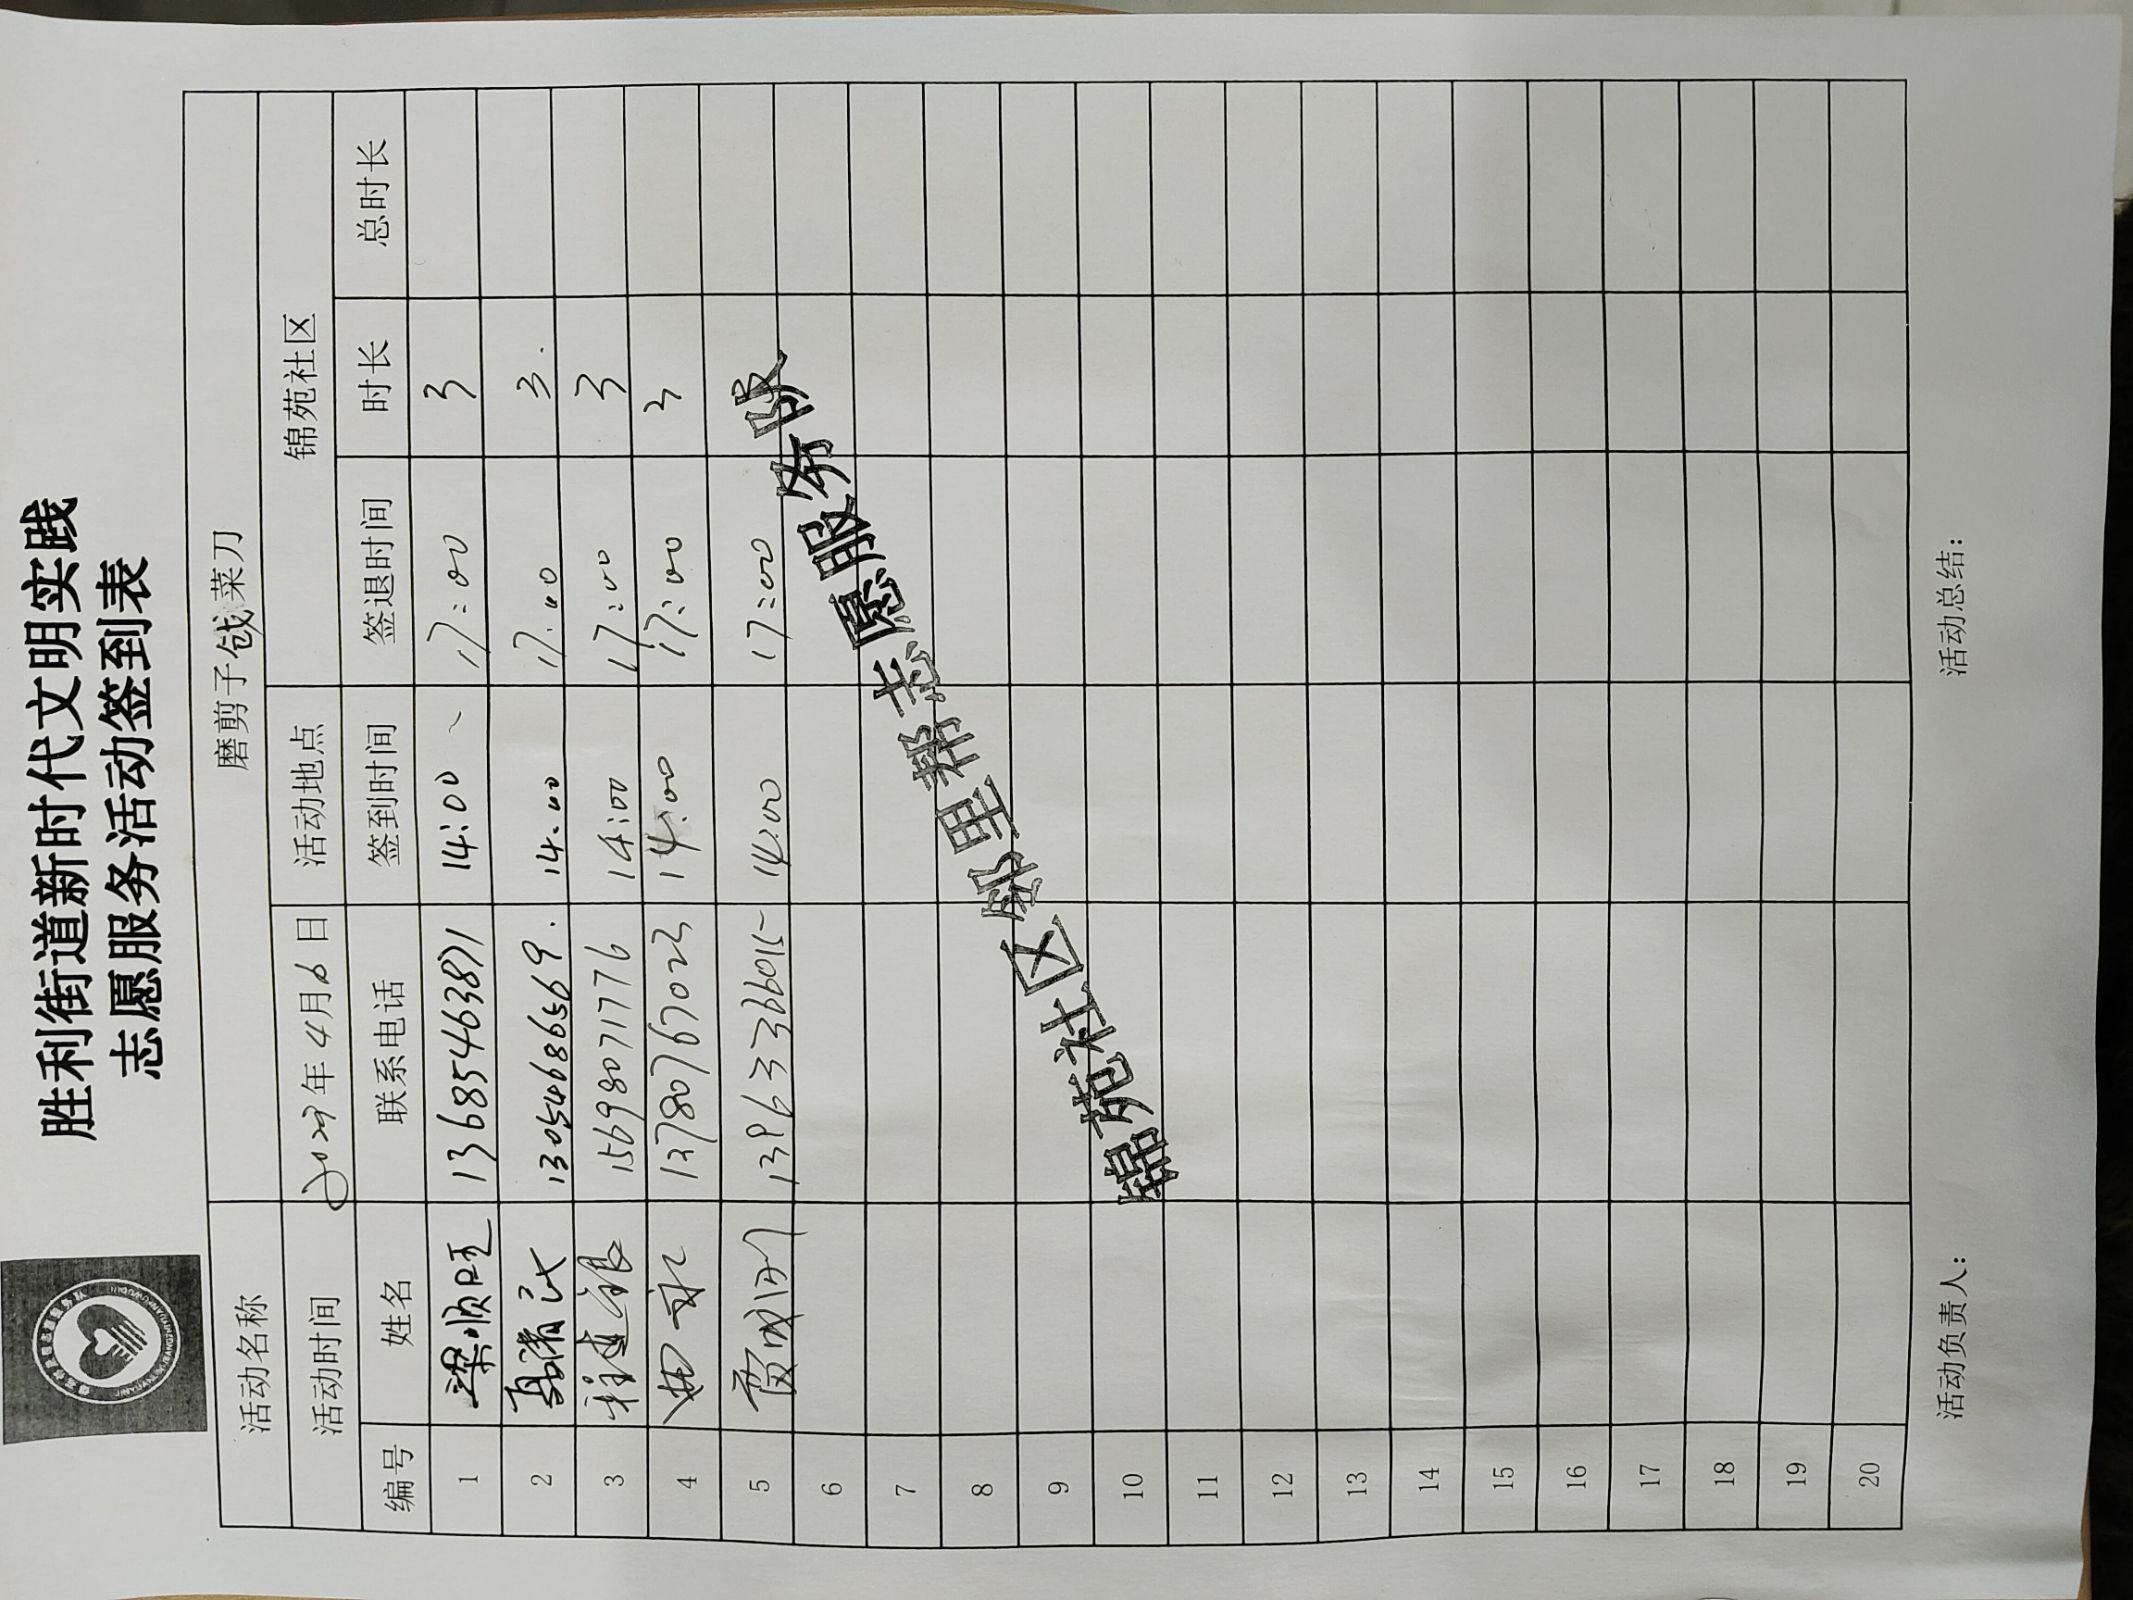 胜利街道新时代文明实践
志愿服务活动签到表
活动名称 磨剪子戗菜刀
活动时间 2023年4月6日 活动地点 锦苑社区
编号 姓名 联系电话 签到时间 签退时间 时长 总时长
1 梁顺旺 13685463871 14:00 17:00 3
2 13054686569. 14:00 17:00 3.
3 程建银 15698071776 14:00 17:00 3
4 13780767023 14:00 17:00 3
5 13963366015 14:00 17:00
6
7
8
9
10
11
12
13
14
15
16
17
18
19
20
锦苑社区邻里帮志愿服务队
活动负责人： 活动总结：